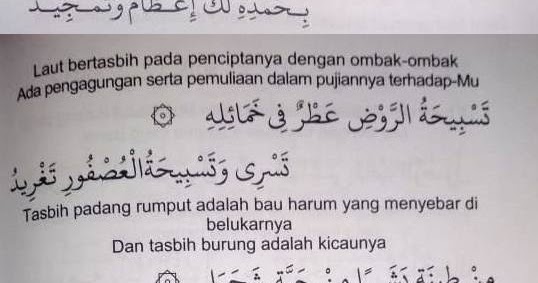 بِحَمْدِهِ لَكَ إِعْظَامٌ وَتَمْجِيدُ
Laut bertasbih pada penciptanya dengan ombak-ombak
Ada pengagungan serta pemuliaan dalam pujiannya terhadap-Mu
تَسْبِيحَةُ الرَّوْضِ عَطْرٌ فِى خَمَائِلِهِ ۞
تَسْرِى وَتَسْبِيحَةُ الْعُصْفُورِ تَغْرِيدُ
Tasbih padang rumput adalah bau harum yang menyebar di
belukarnya
Dan tasbih burung adalah kicaunya